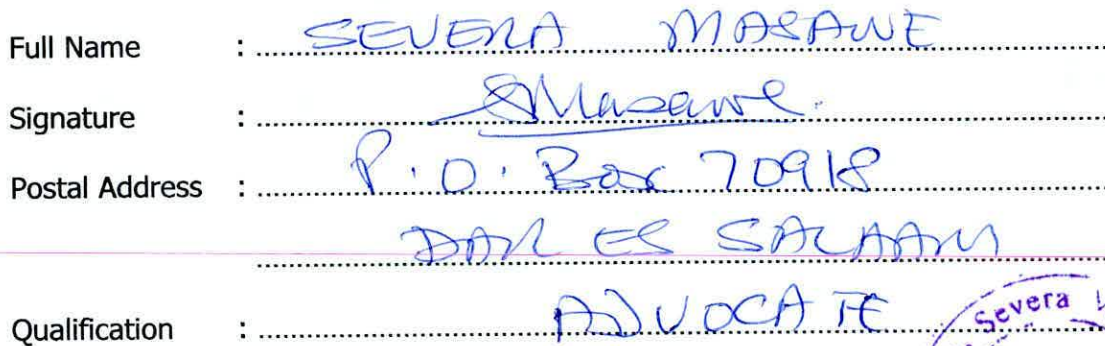 Full Name : SEVERA MASAWE
Signature : SMasawe.
Postal Address : P.O. Box 70918
DAR ES SALAAM
Qualification : ADVOCATE
Severa